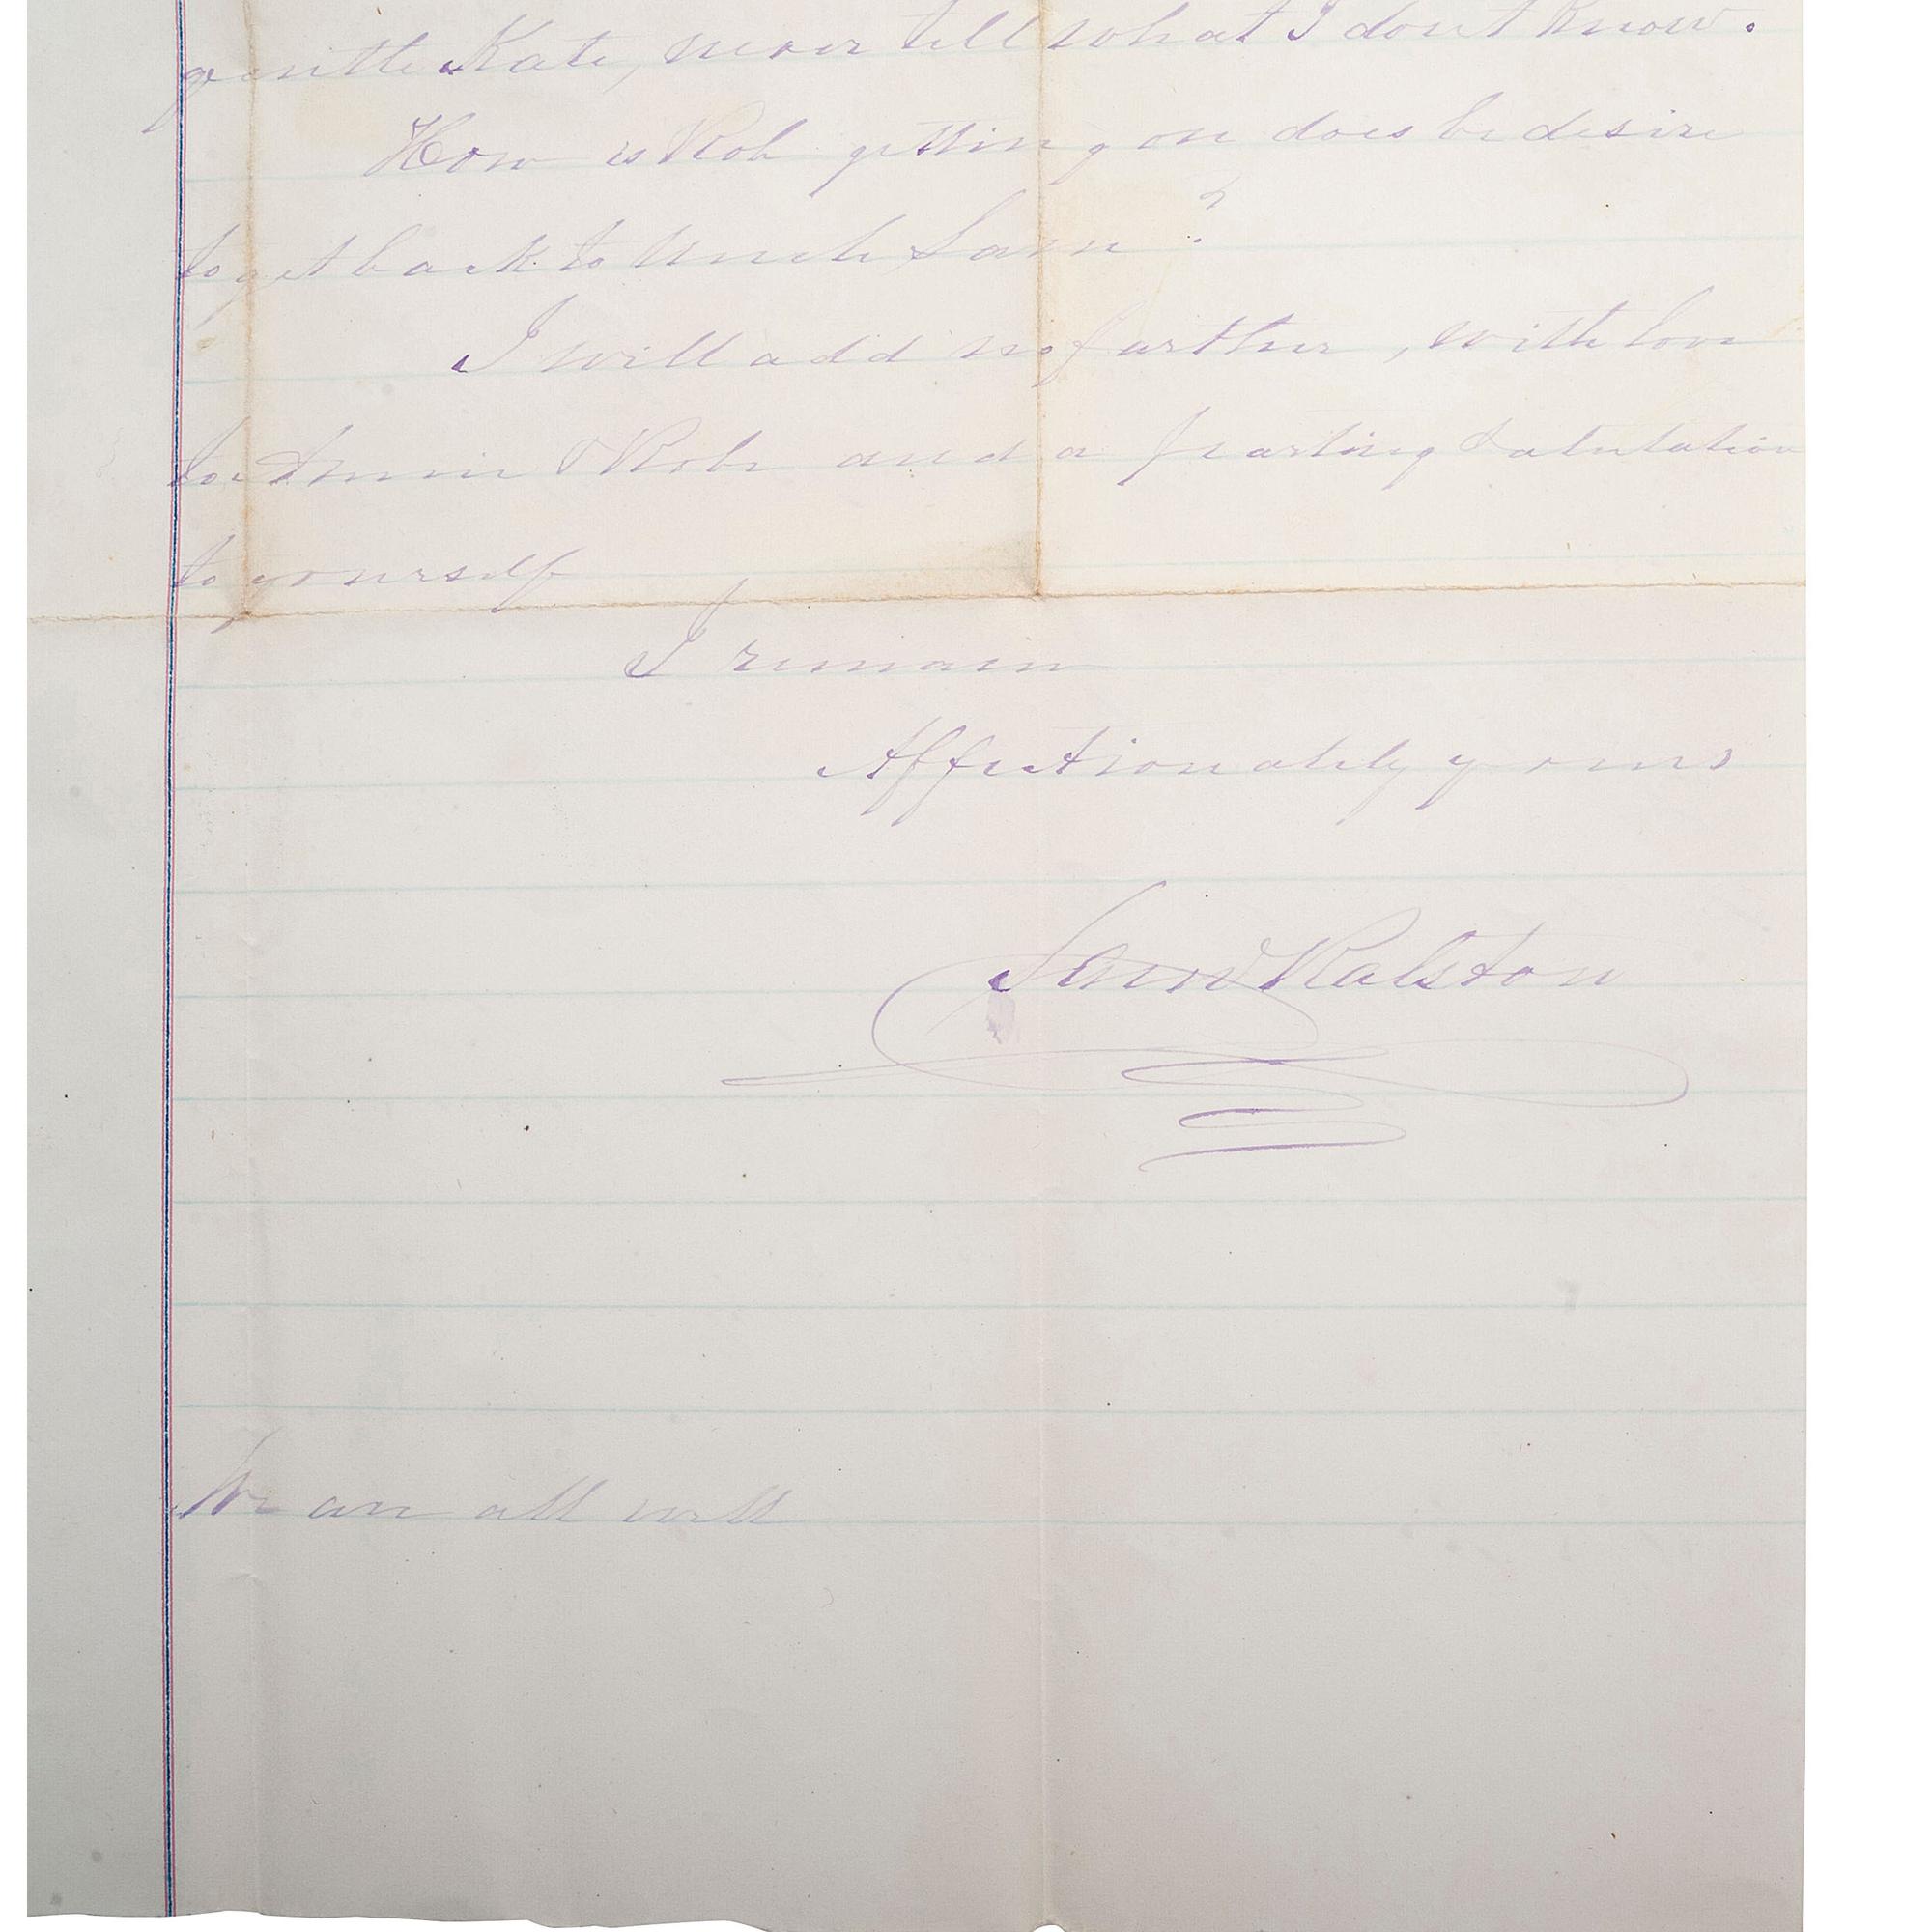 gentle Kate, never tell what I dont know.
How is Rob getting on does he desire
to get back to Uncle Sam?
I will add no further, with love
to Annie & Rob and a parting Salutation
to yourself
I remain
Affectionately yours
Sam Ralston
We are all well